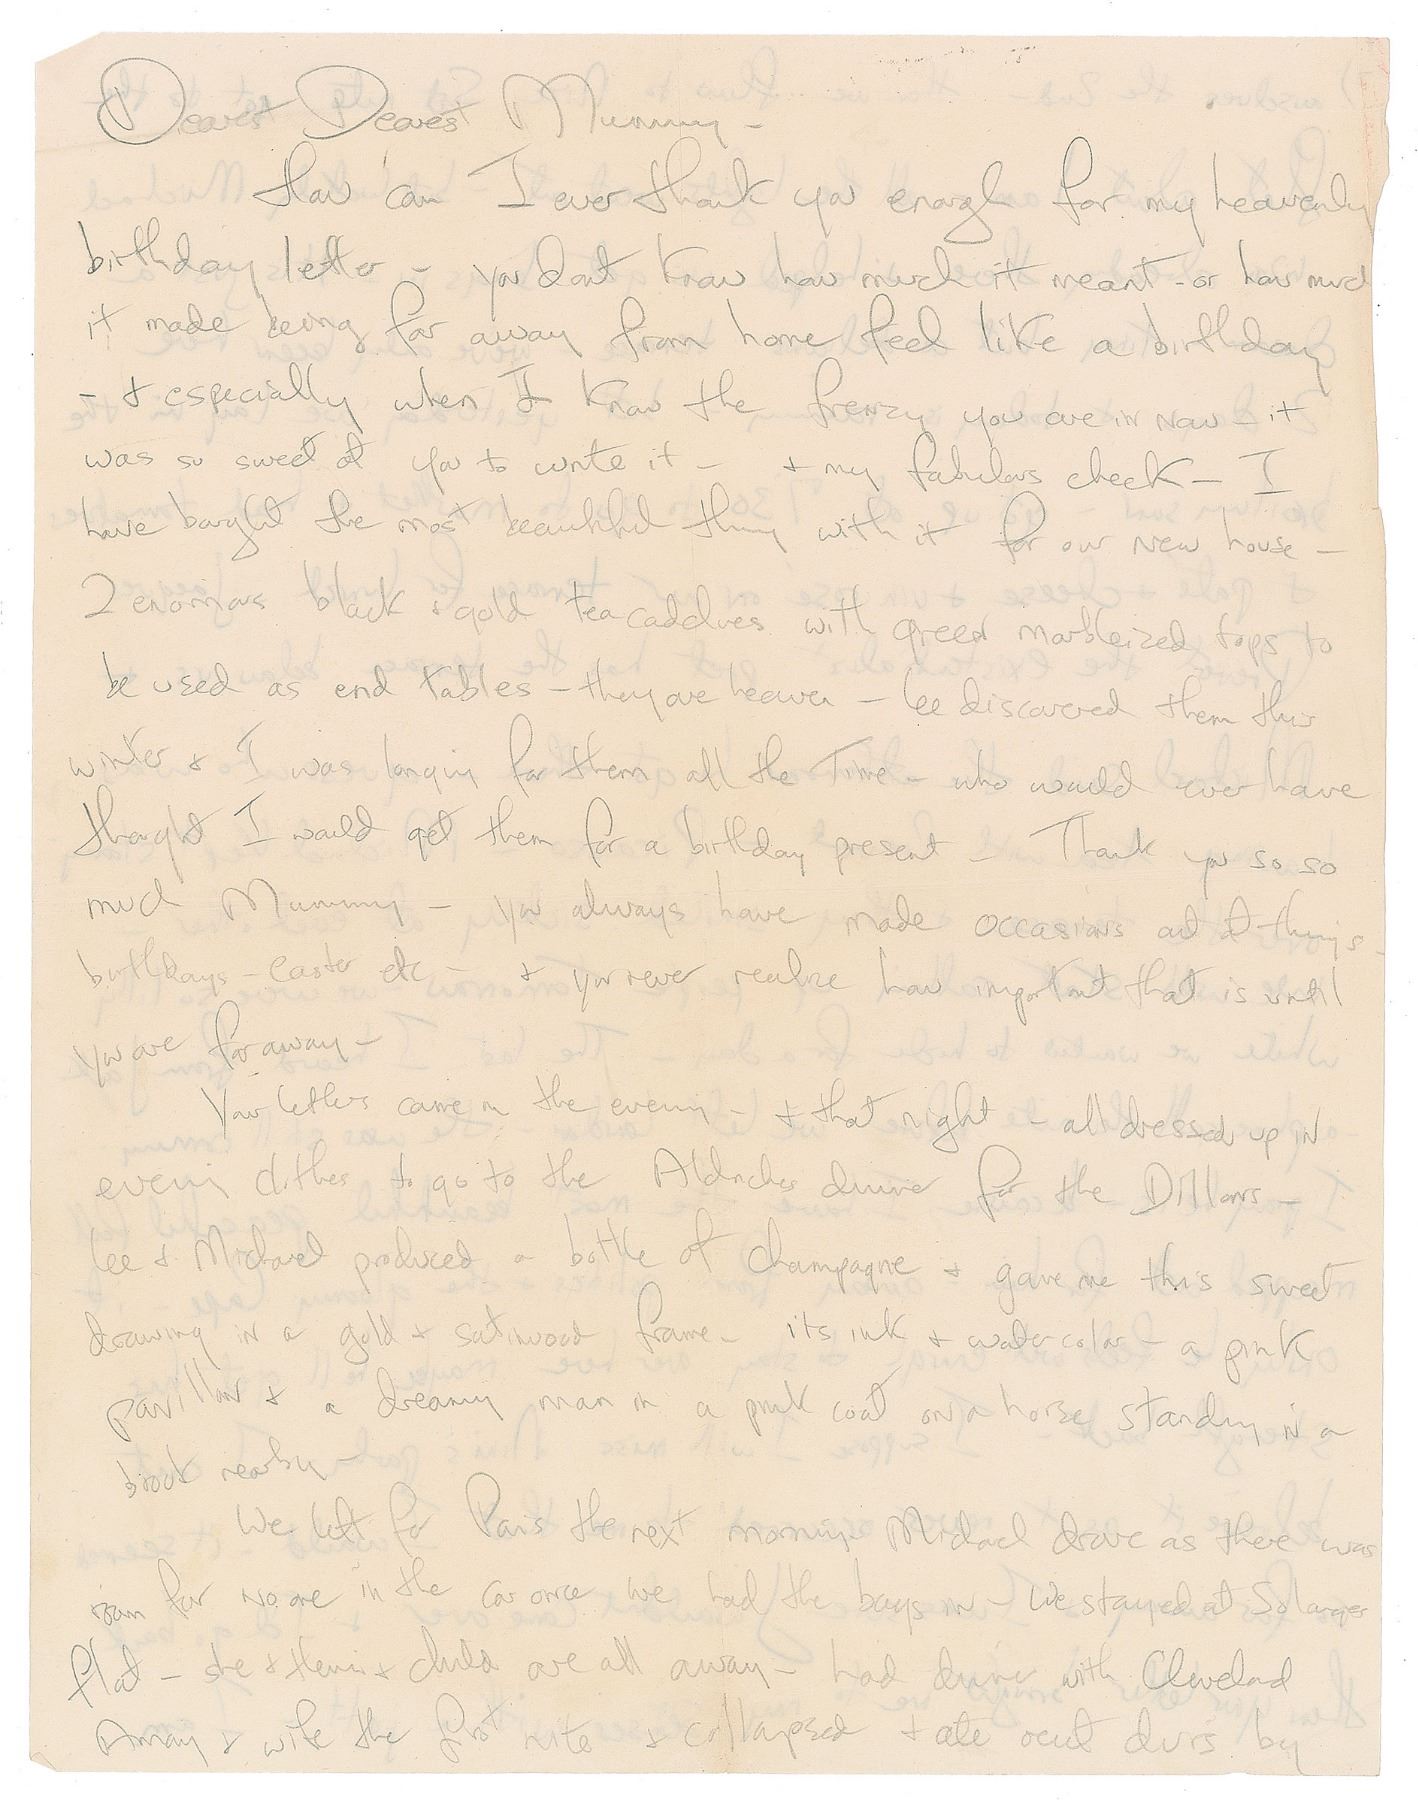 Dearest Dearest Mummy –
How can I ever thank you enough for my heavenly
birthday letter – you dont know how much it meant – or how much
it made being far away from home feel like a birthday
– & especially when I know the frenzy you are in now – it
was so sweet of you to write it – & my fabulous check – I
have bought the most beautiful thing with it for our new house –
2 enormous black & gold tea caddies with green marbleized tops to
be used as end tables – they are heaven – Lee discovered them this
winter & I was longing for them all the time – who would ever have
thought I would get them for a birthday present – Thank you so so
much Mummy – you always have made occasions out of things –
birthdays – easter etc – & you never realize how important that is until
you are far away –
Your letters came in the evening – & that night – all dressed up in
evening clothes to go to the Aldriches dinner for the Dillons –
Lee & Michael produced a bottle of champagne & gave me this sweet
drawing in a gold & satinwood frame – its ink & watercolor – a pink
pavillion & a dreamy man in a pink coat on a horse standing in a
brook nearby –
We left for Paris the next morning Michael drove as there was
room for no one in the car once we had the bags in – We stayed at Solanges
flat – she & & child are all away – had dinner with Cleveland
Amory & wife the first nite & collapsed & ate by